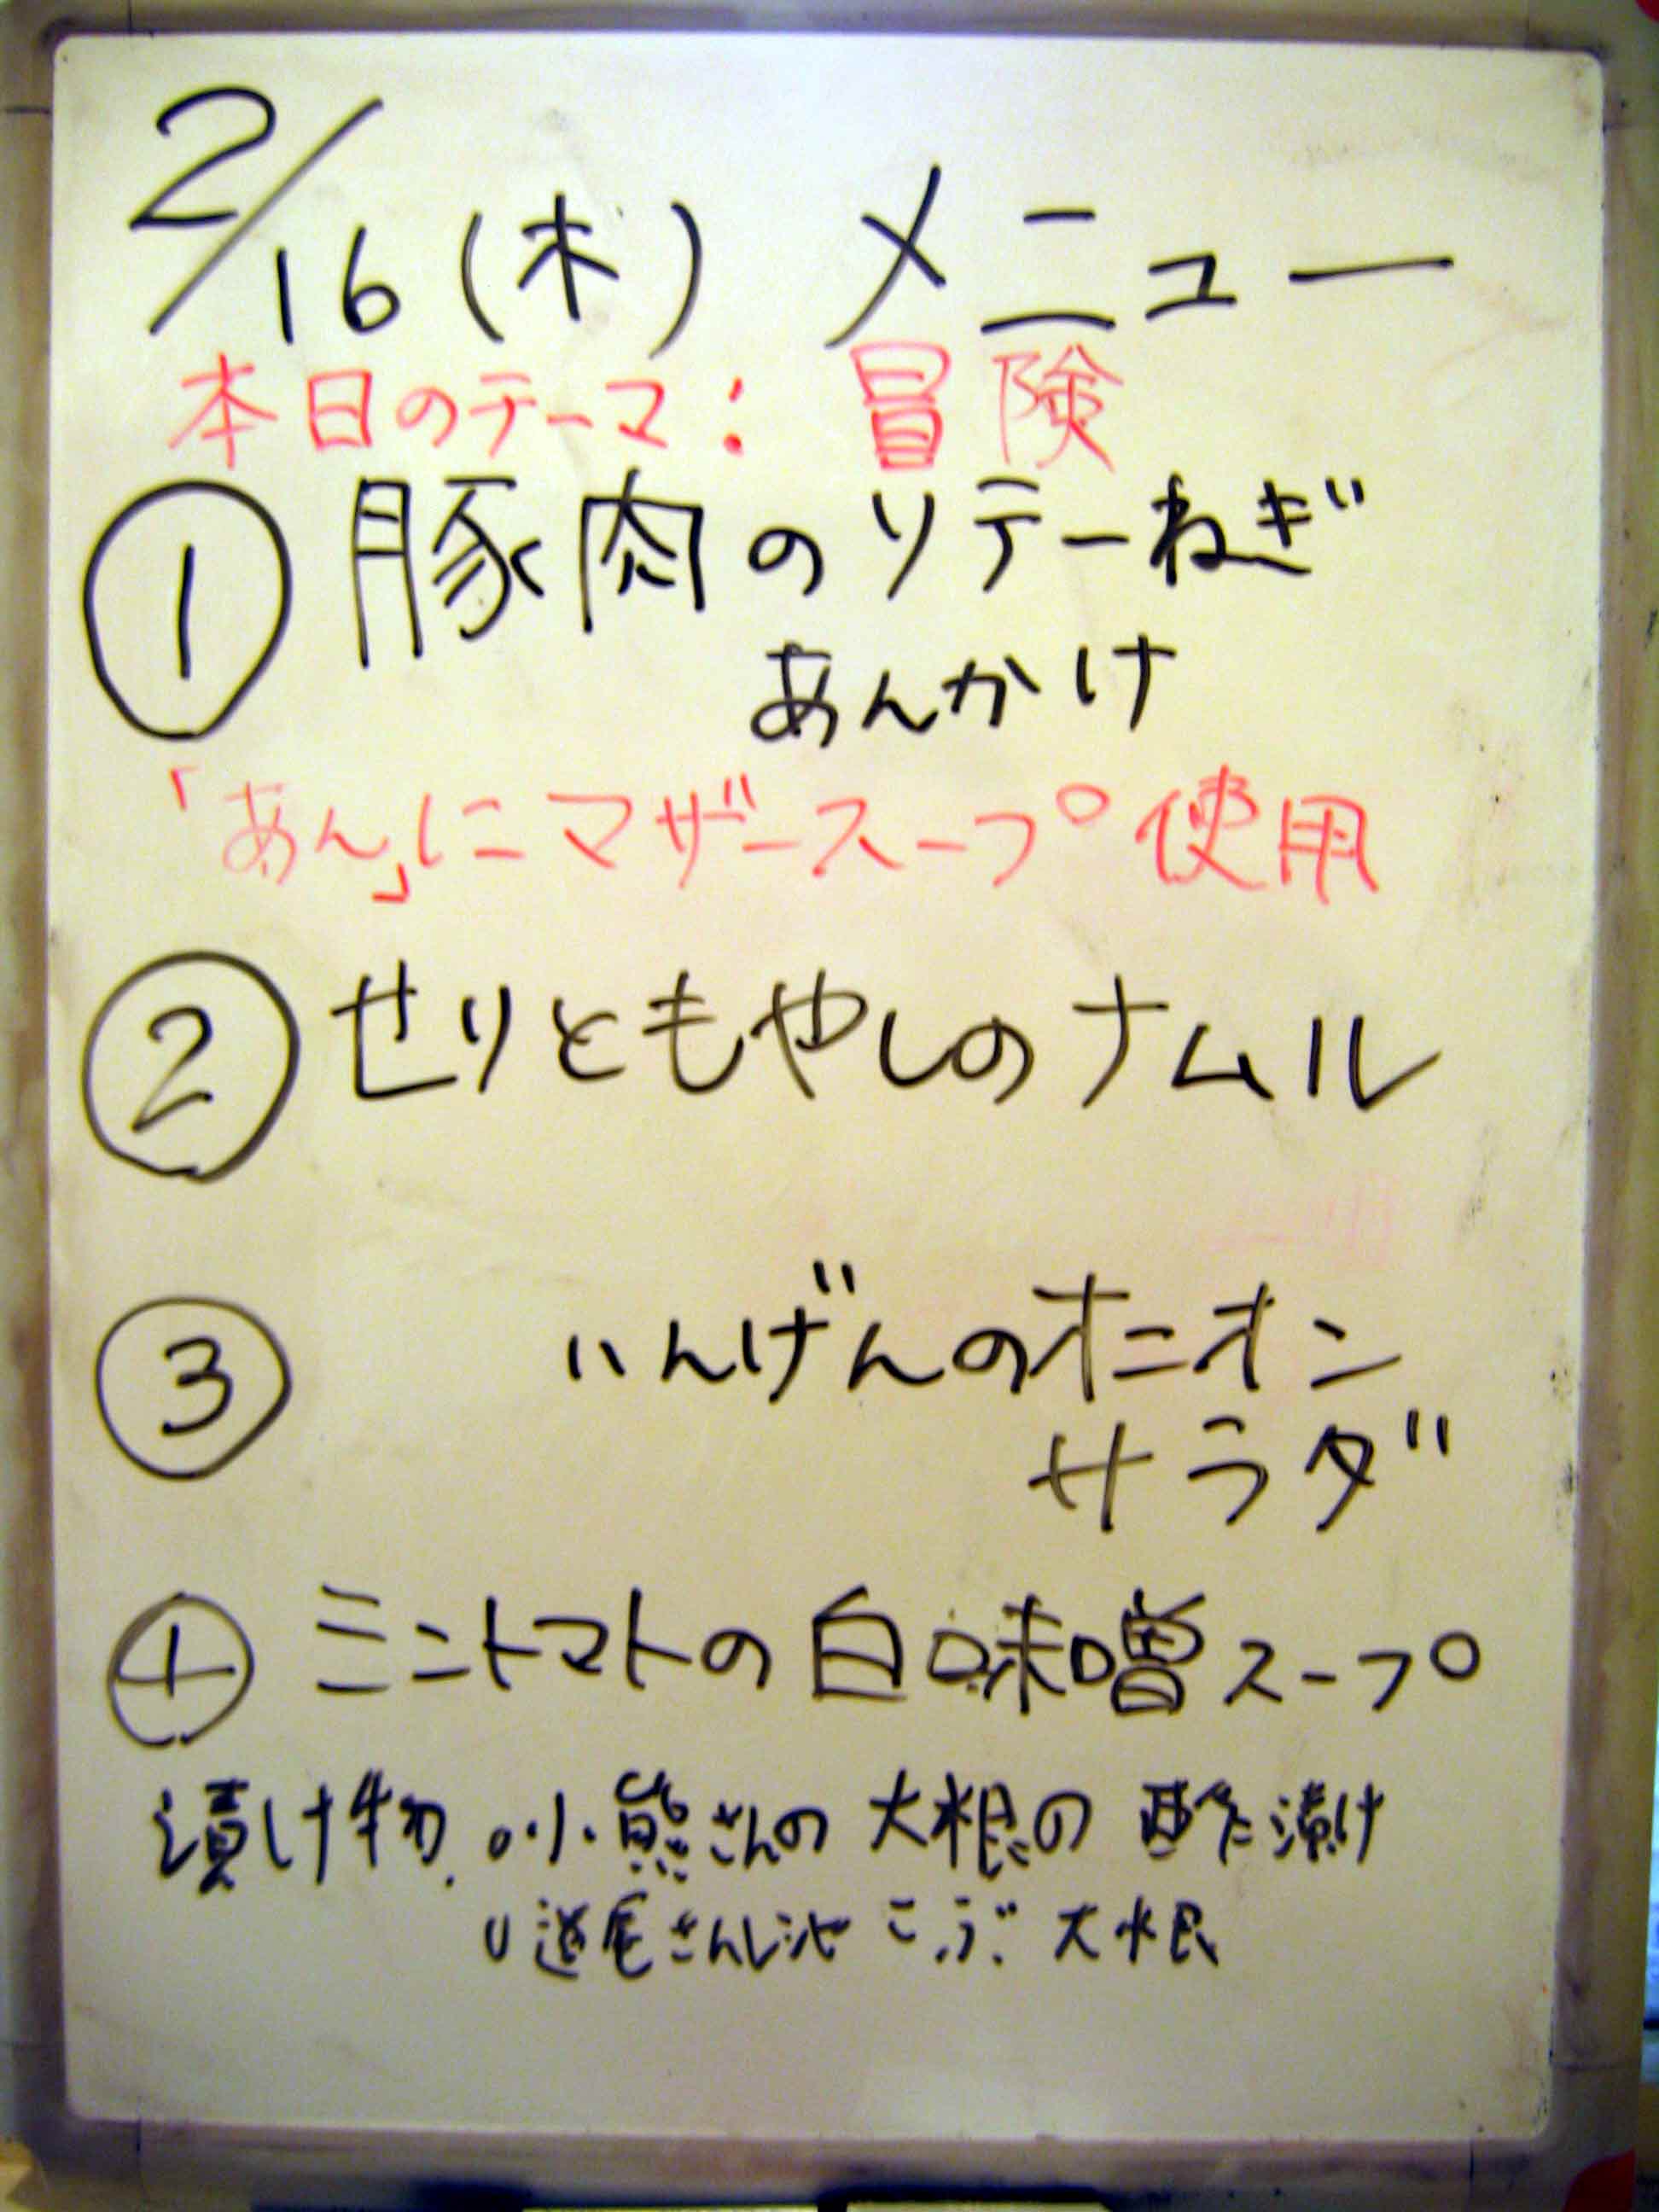 2/16(木) メニュー
本日のテーマ: 冒険
① 豚肉のソテーねぎ
あんかけ
「あん」にマザースープ使用
② せりともやしのナムル
③ いんげんのオニオン
サラダ
⊕ ミニトマトの白味噌スープ
漬け物 。小熊さんの大根の酢漬け
尾さん こぶ大根